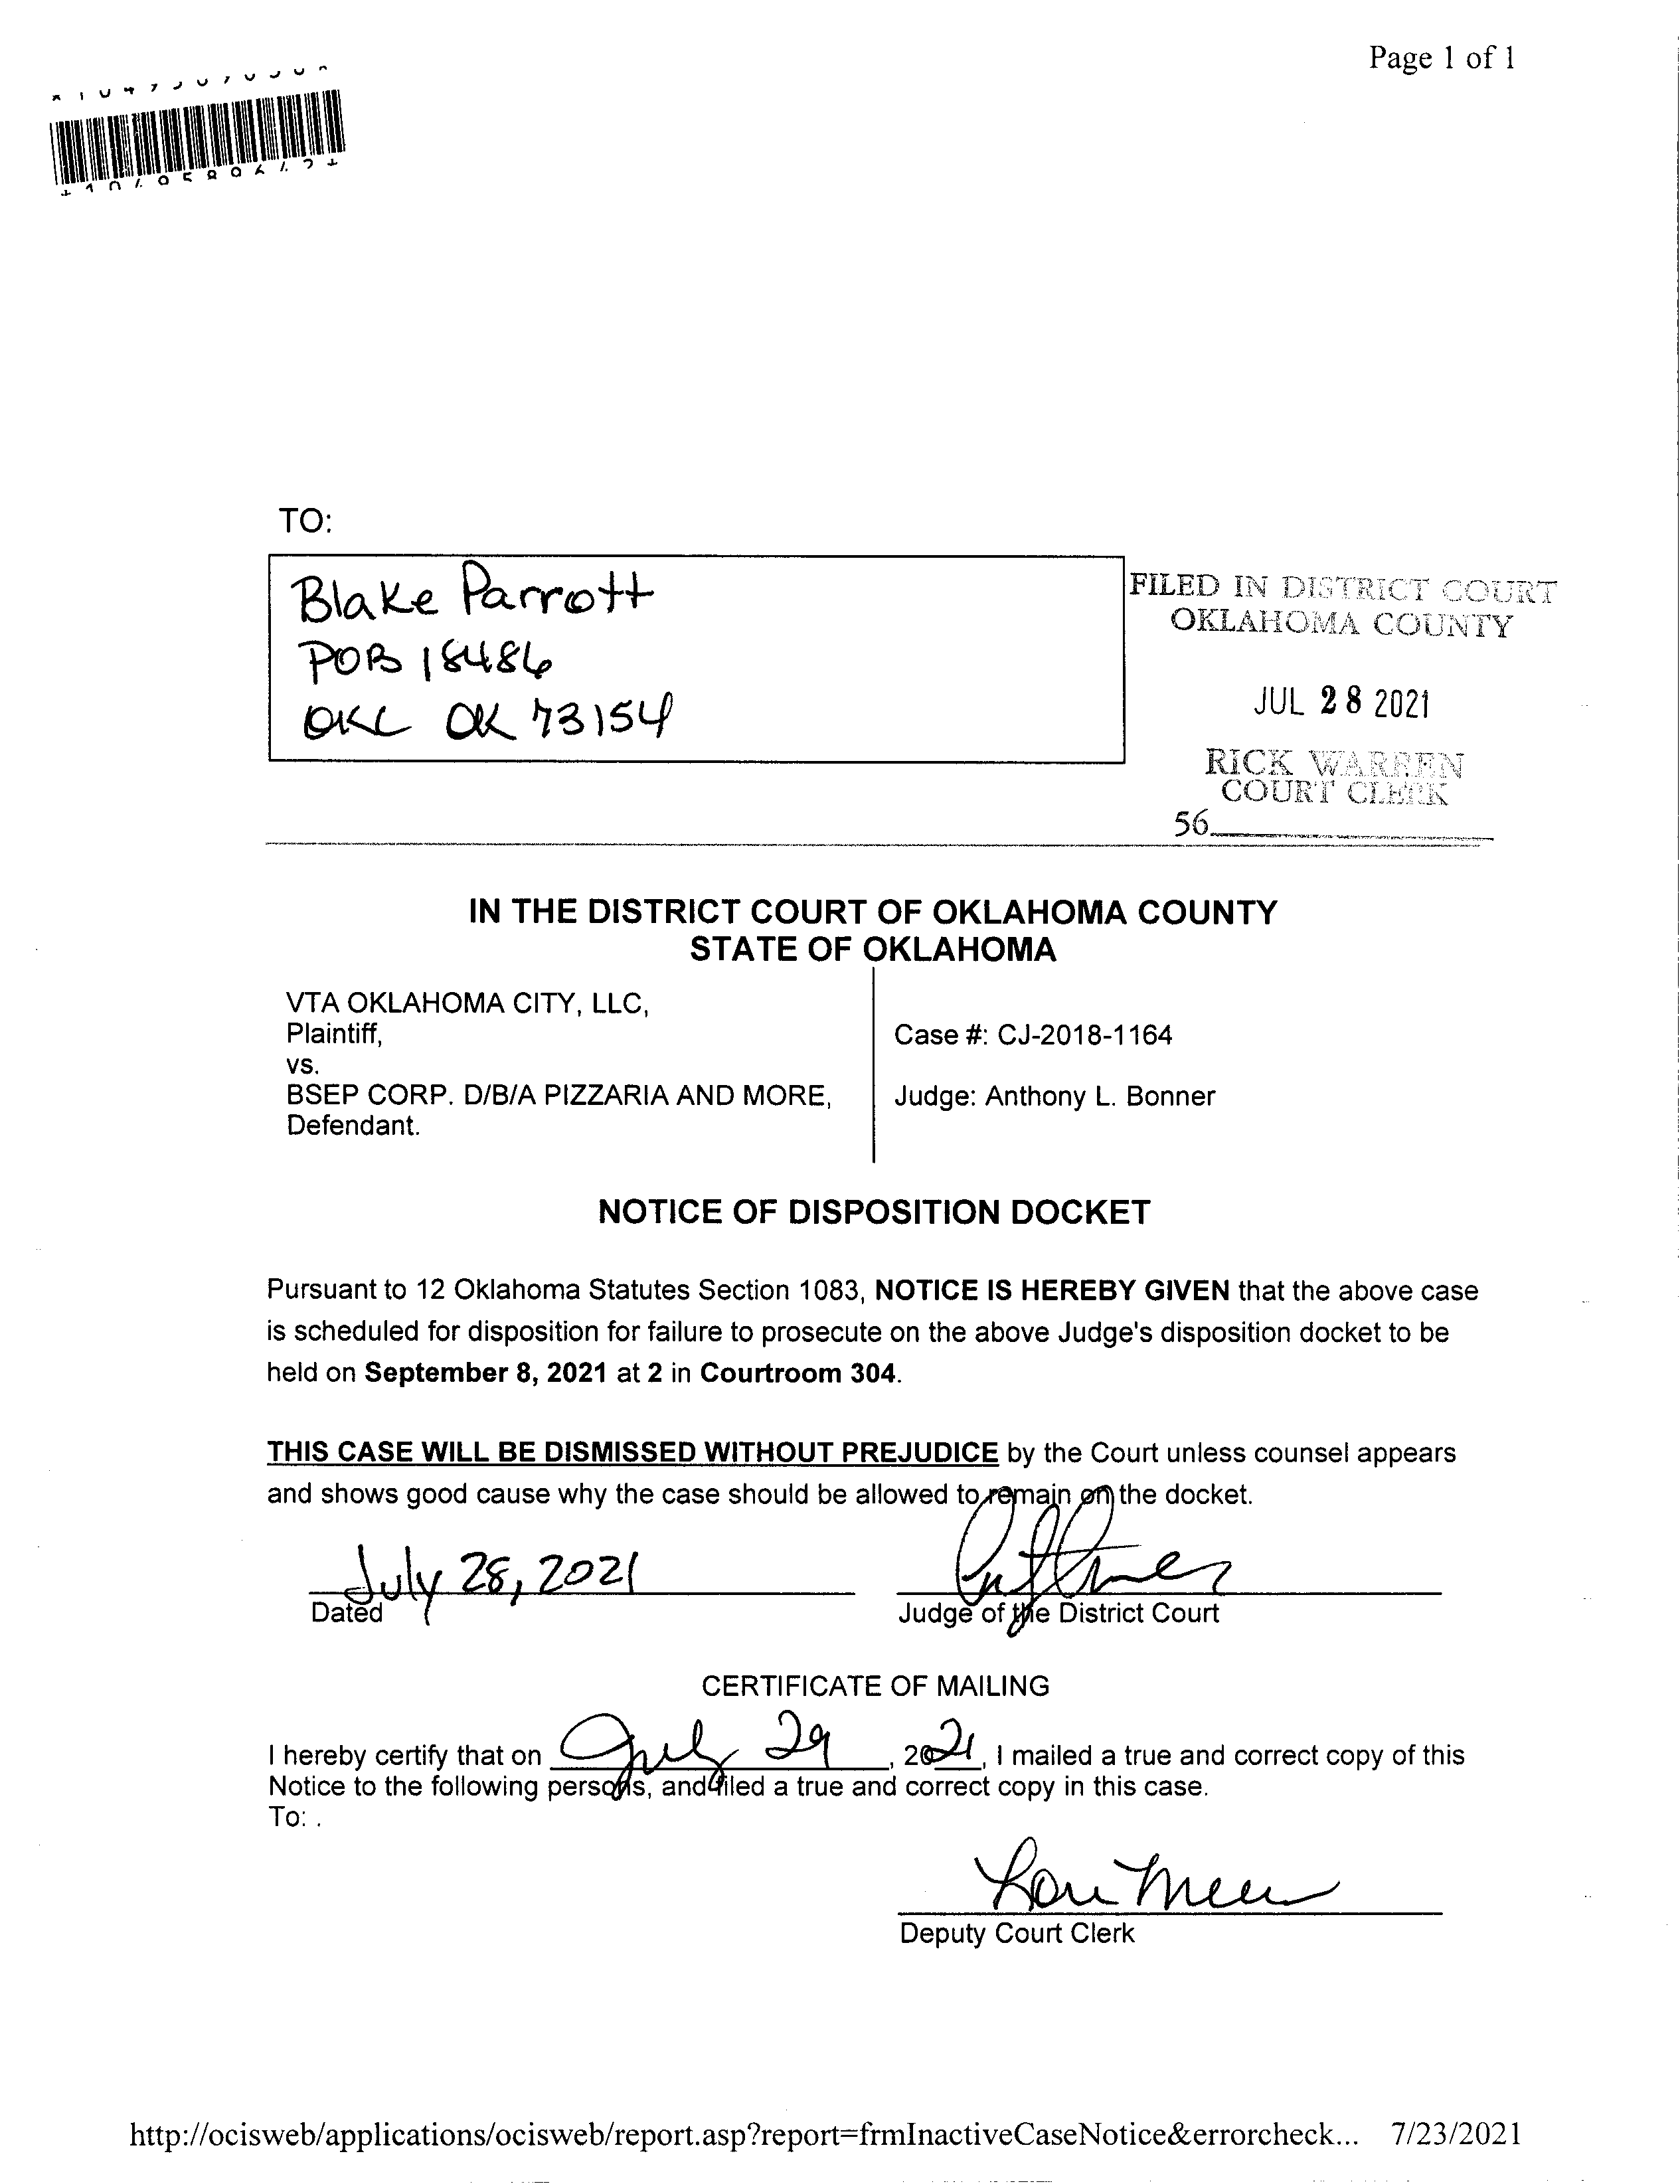 Page 1 of 1
TO:
Blake Parrott
POB 18486
OKC OK 73154
FILED IN DISTRICT COURT
OKLAHOMA COUNTY
JUL 28 2021
RICK WARREN
COURT CLERK
56
IN THE DISTRICT COURT OF OKLAHOMA COUNTY
STATE OF OKLAHOMA
VTA OKLAHOMA CITY, LLC,
Plaintiff,
vs.
BSEP CORP. D/B/A PIZZARIA AND MORE,
Defendant.
Case #: CJ-2018-1164
Judge: Anthony L. Bonner
NOTICE OF DISPOSITION DOCKET
Pursuant to 12 Oklahoma Statutes Section 1083, NOTICE IS HEREBY GIVEN that the above case
is scheduled for disposition for failure to prosecute on the above Judge's disposition docket to be
held on September 8, 2021 at 2 in Courtroom 304.
THIS CASE WILL BE DISMISSED WITHOUT PREJUDICE by the Court unless counsel appears
and shows good cause why the case should be allowed to remain on the docket.
July 28, 2021
Dated
Judge of the District Court
CERTIFICATE OF MAILING
I hereby certify that on July 29, 2021, I mailed a true and correct copy of this
Notice to the following persons, and filed a true and correct copy in this case.
To: .
Deputy Court Clerk
http://ocisweb/applications/ocisweb/report.asp?report=frmInactiveCaseNotice&errorcheck... 7/23/2021